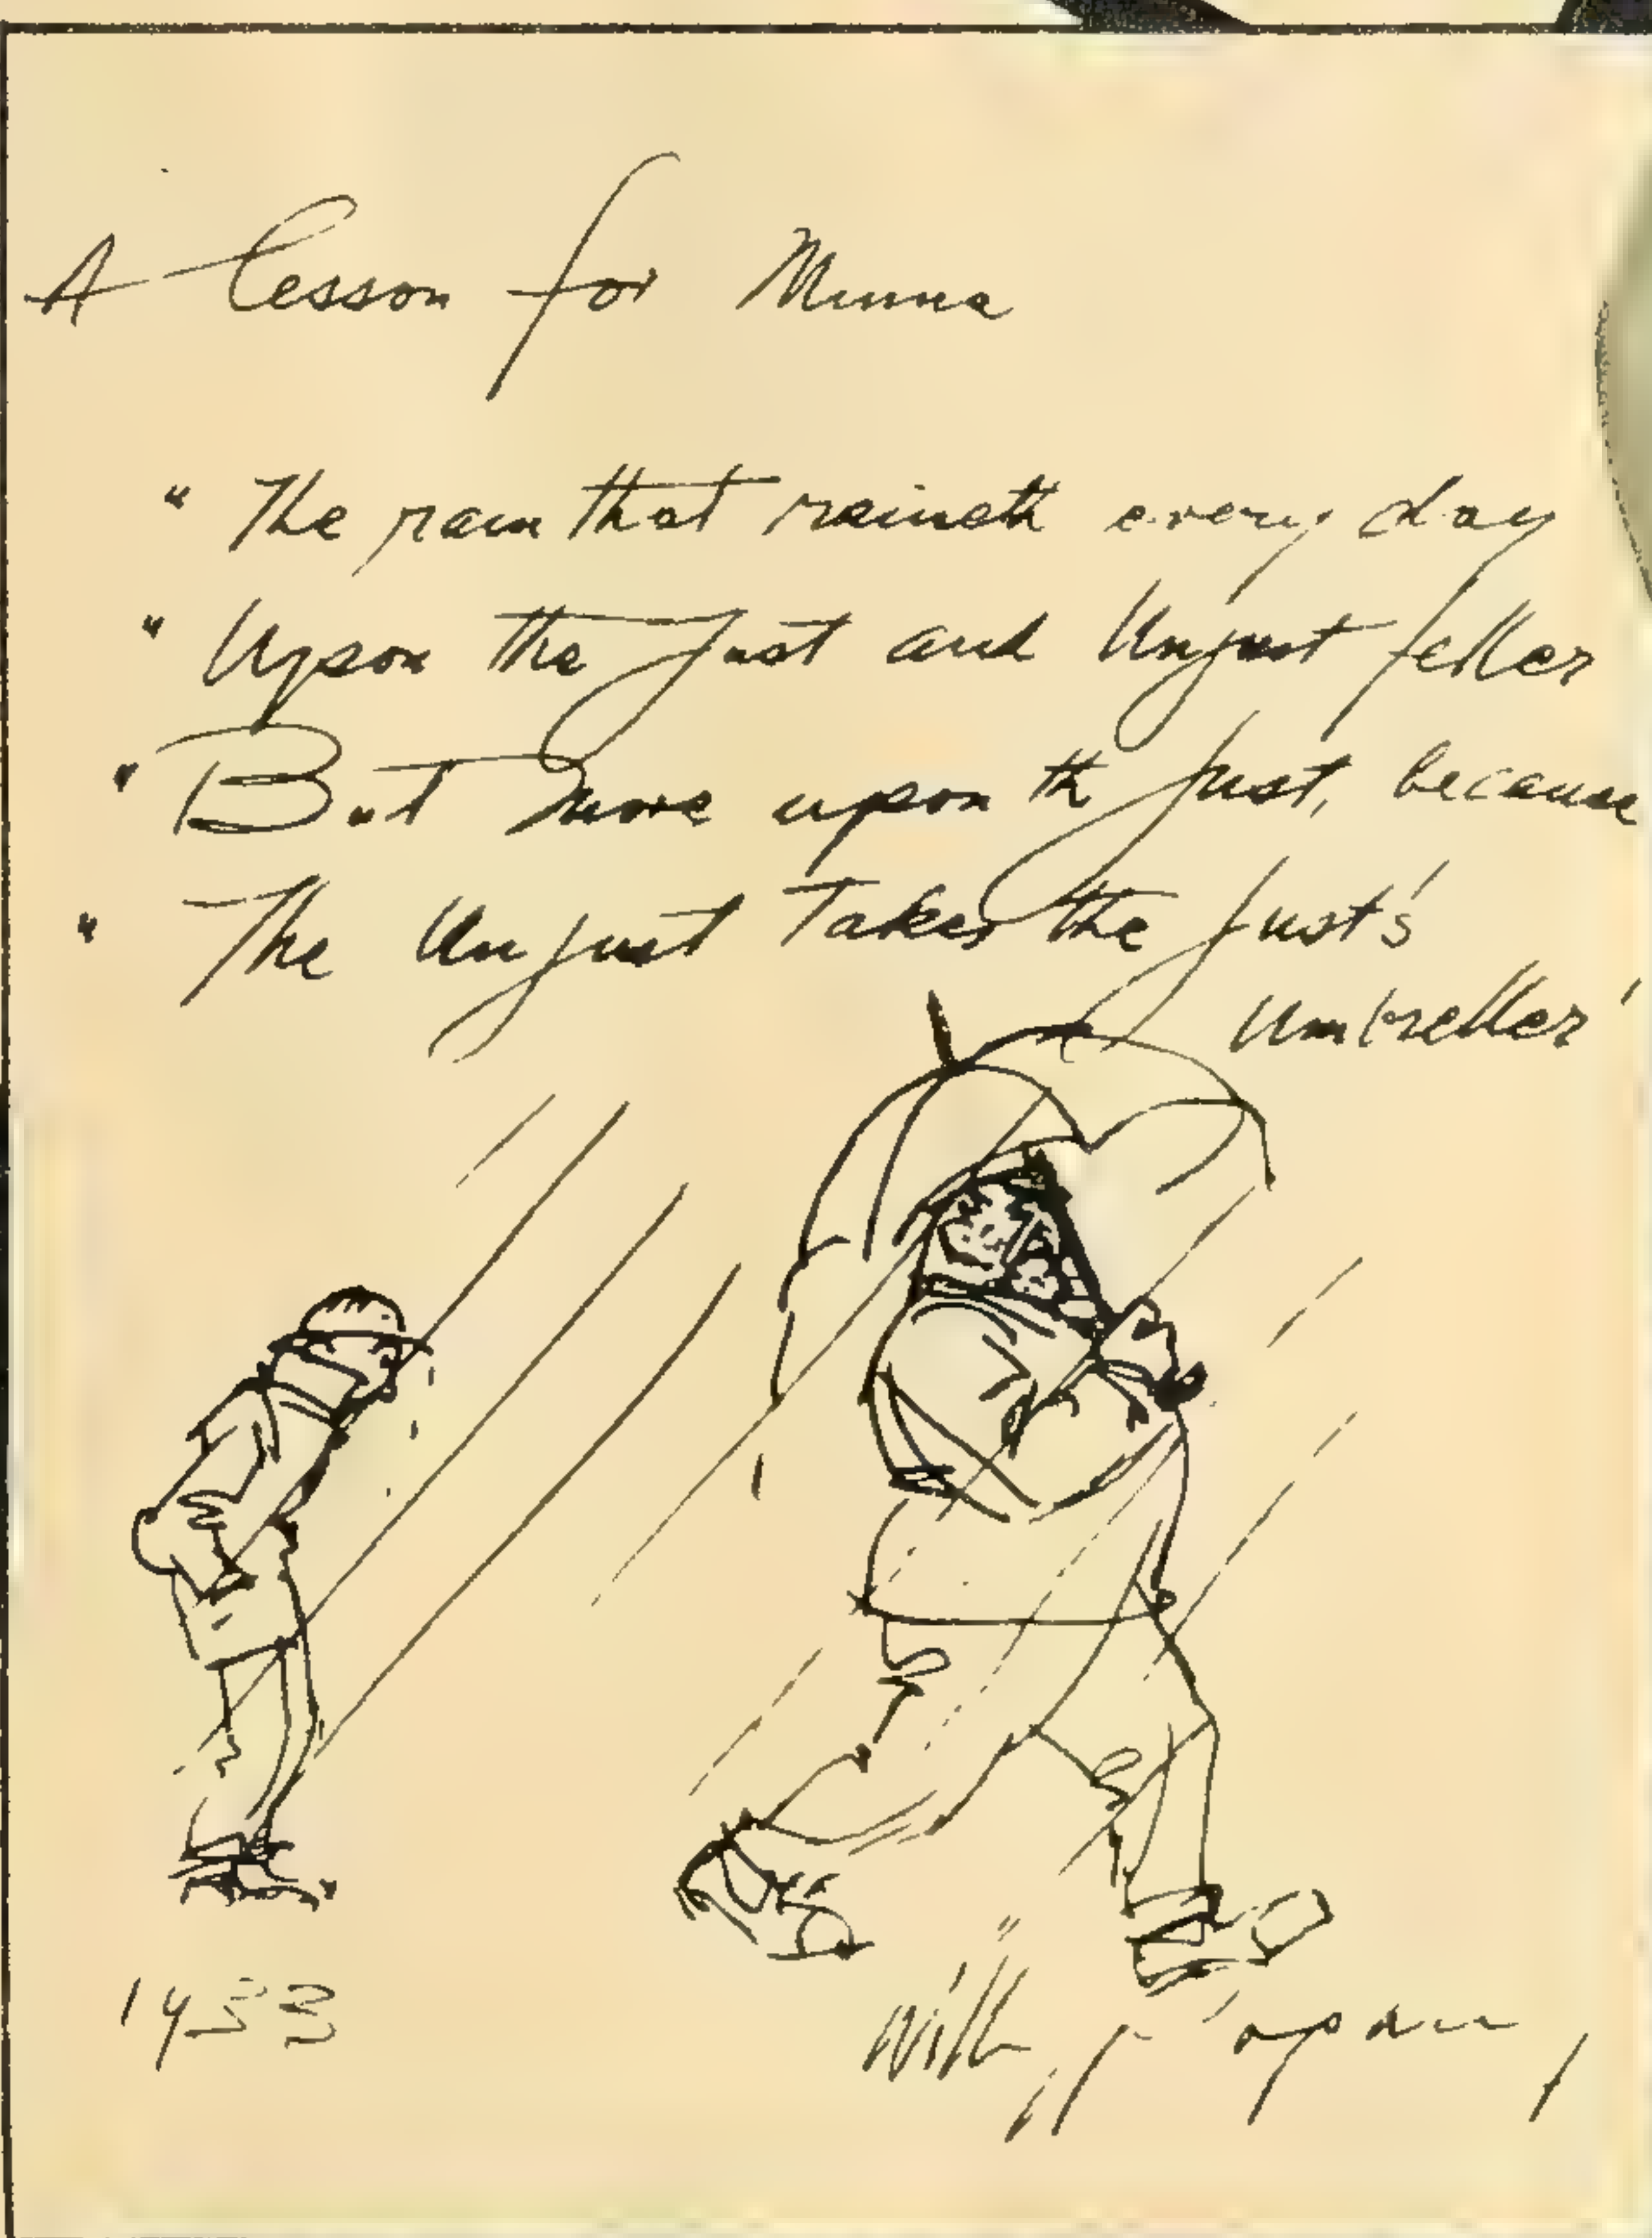 A lesson for Minna
" The rain that raineth every day
" Upon the Just and Unjust feller
" But more upon th Just, because
" The Unjust Takes the Just's
Umbreller'
1933
"Willy